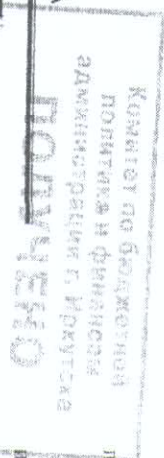 Комитет по бюджетной
политике и финансам
администрации г. Иркутска
ПОЛУЧЕНО